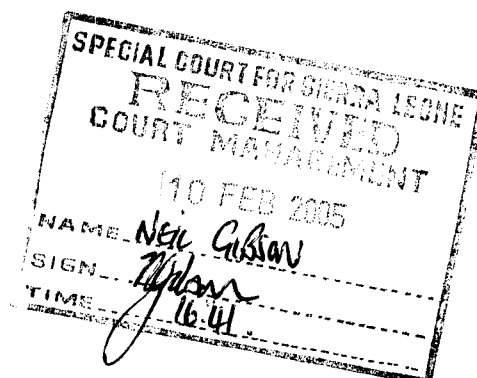 SPECIAL COURT FOR SIERRA LEONE
RECEIVED
COURT MANAGEMENT
10 FEB 2005
NAME Neil Gibson
SIGN
TIME 16.41.